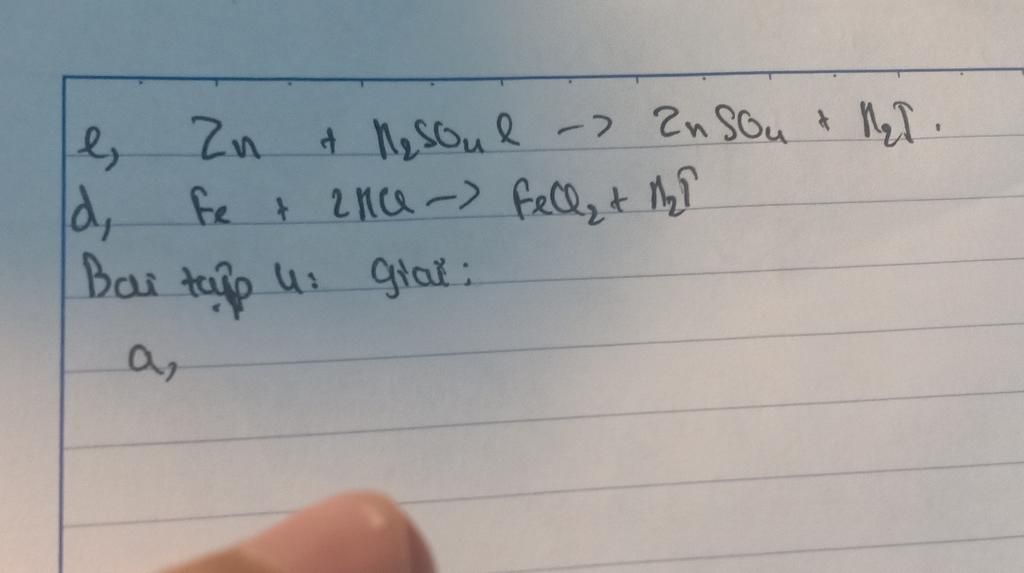 e, Zn + H₂SO₄ l -> ZnSO₄ + H₂↑.
d, Fe + 2HCl -> FeCl₂ + H₂↑
Bài tập 4: Giải:
a,